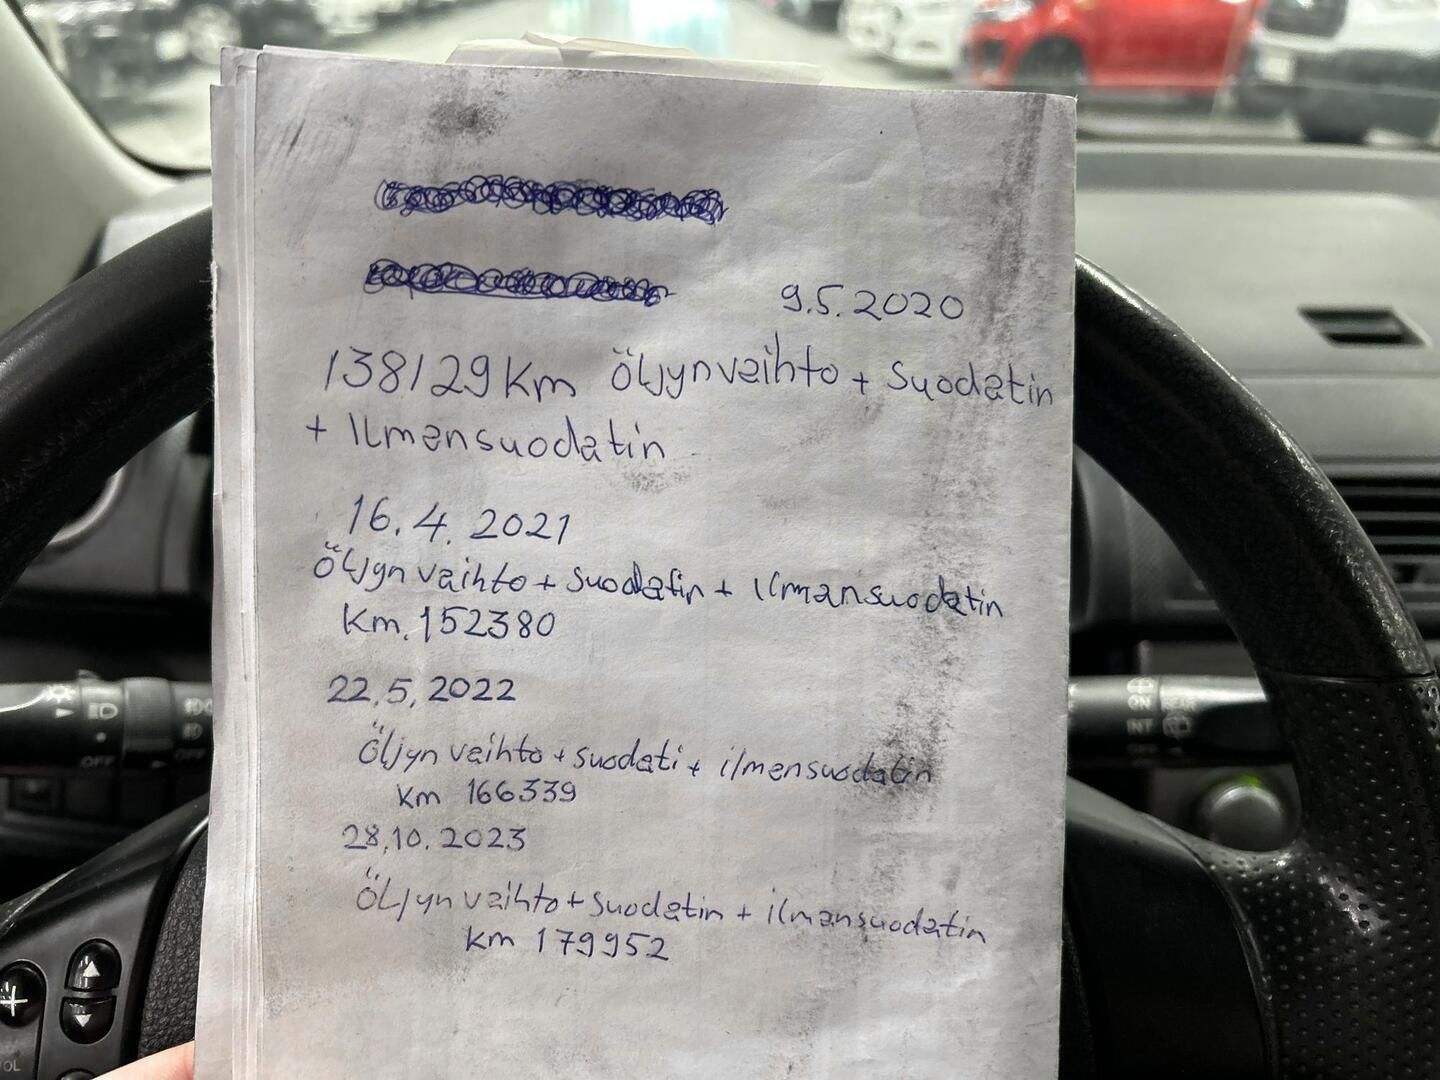 9.5.2020
138129 Km Öljynvaihto + Suodatin
+ Ilmansuodatin
16.4.2021
Öljynvaihto + suodatin + ilmansuodatin
Km. 152380
22,5,2022
Öljynvaihto + suodati + ilmansuodatin
Km 166339
28,10.2023
Öljynvaihto + suodatin + ilmansuodatin
Km 179952
OFF
OFF
ON REAR
INT
OFF
+
OL